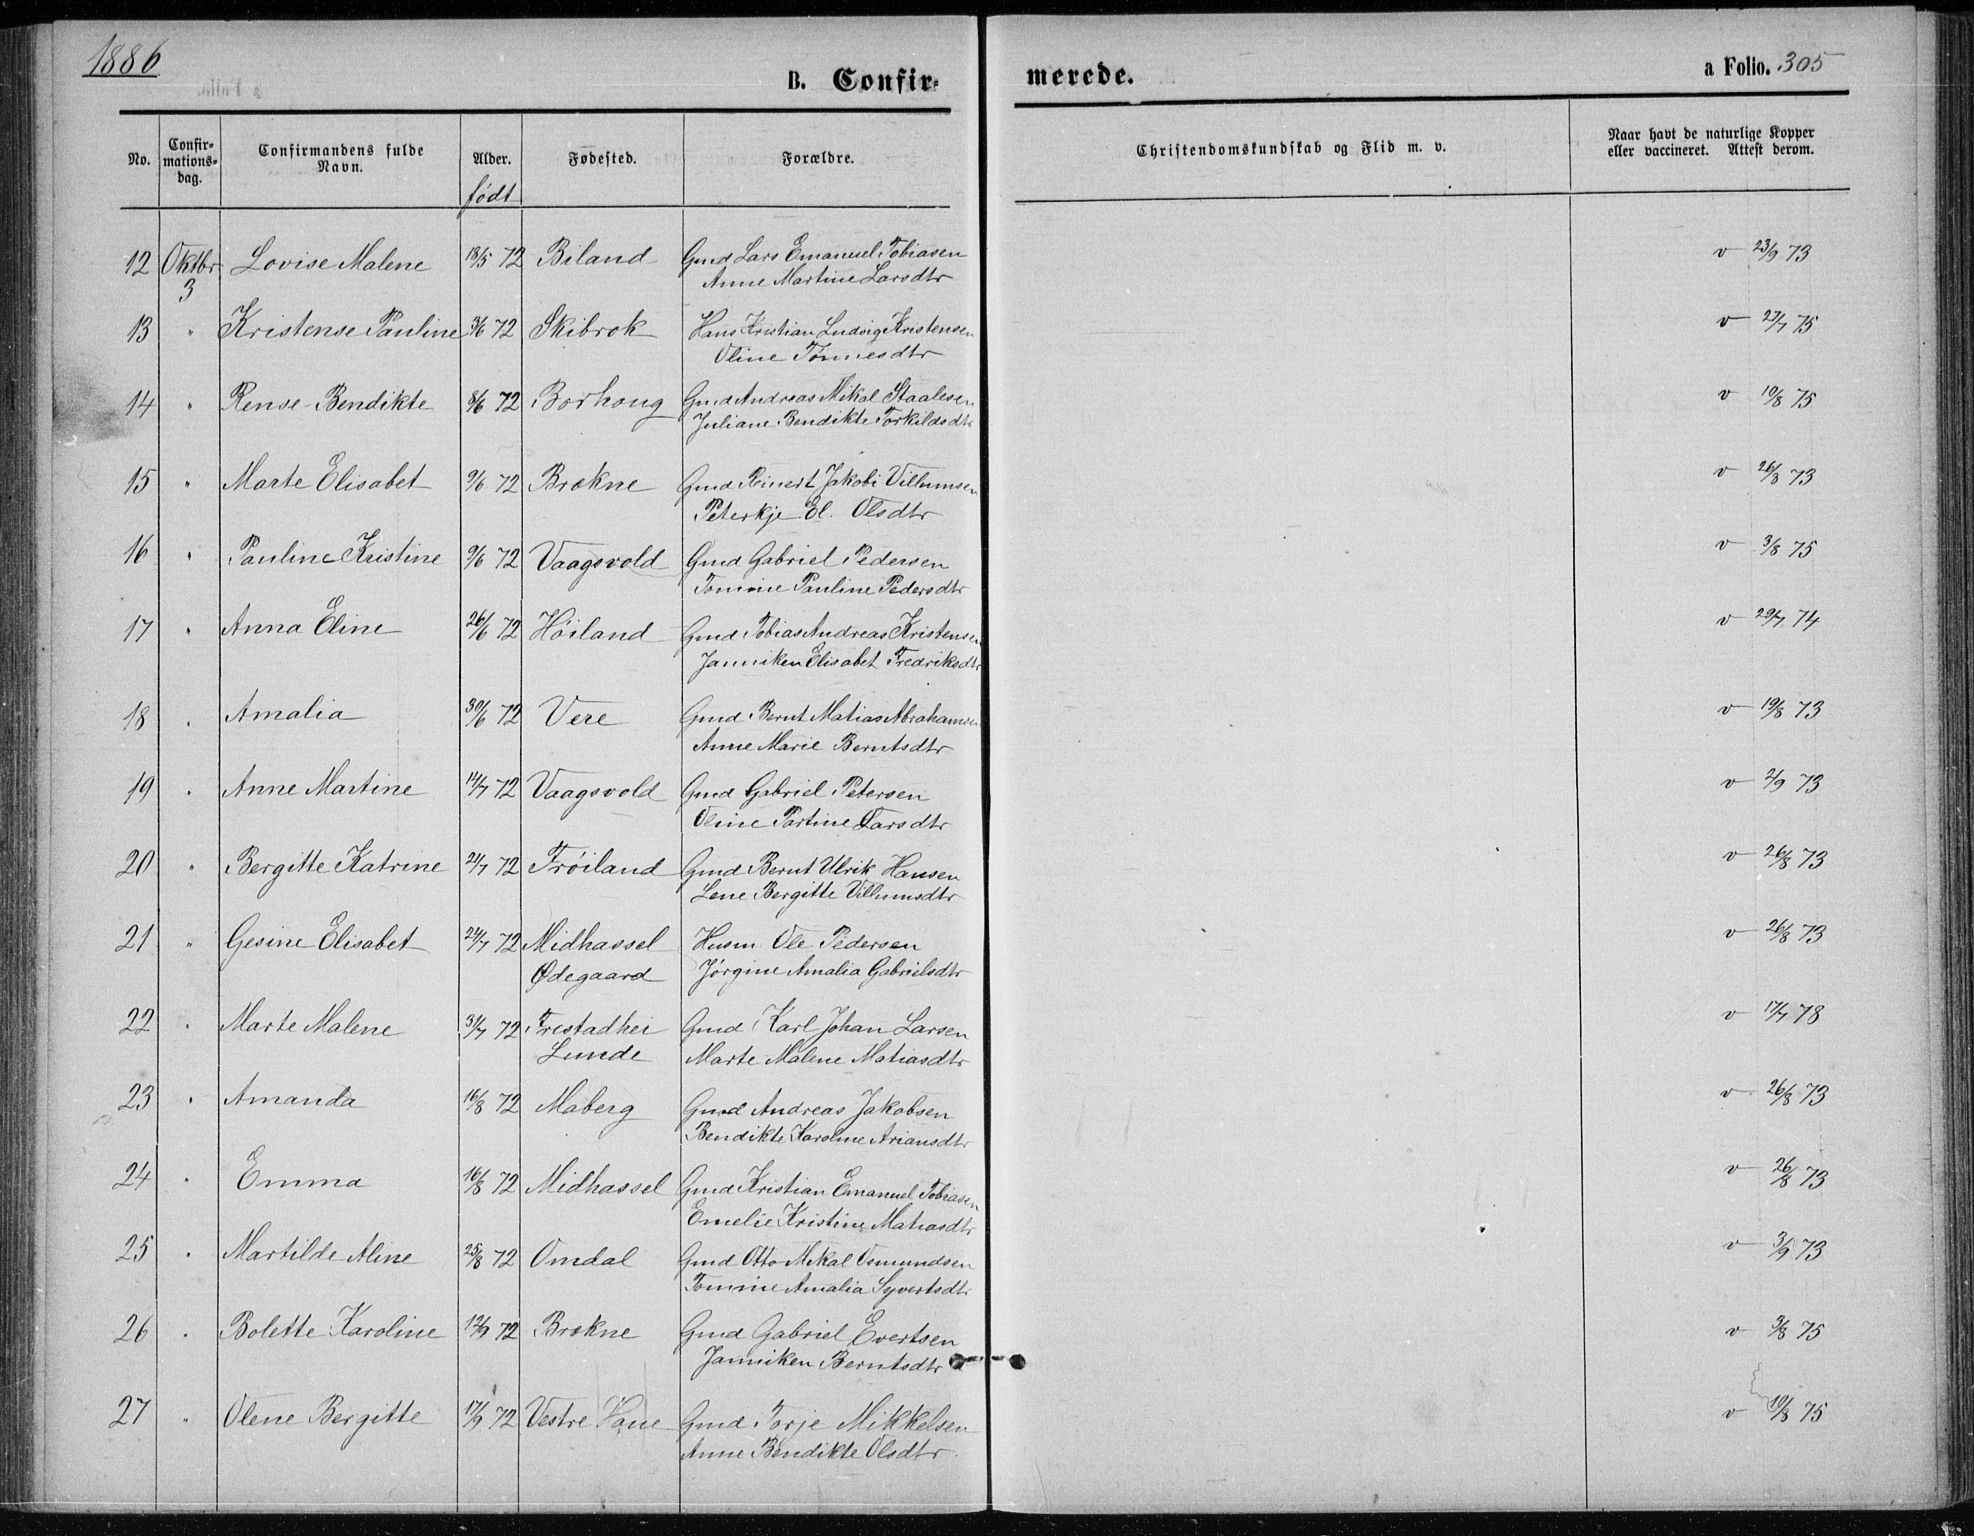 1886
B. Confir-
merede.
a Folio. 305
No.
Confir-
mations-
dag.
Confirmandens fulde
Navn.
Alder.
født
Fødested.
Forældre.
Christendomskundskab og Flid m. v.
Naar havt de naturlige Kopper
eller vaccineret. Attest derom.
12 Oktbr 3 Lovise Malene 18/5 72 Biland Gmd Lars Emanuel Tobiasen v 23/9 73
Anne Martine Larsdtr
13 " Kristense Pauline 3/6 72 Skibrok Hans Kristian Ludvig Kristensen v 27/7 75
Oline Tønnesdtr
14 " Rense Bendikte 8/6 72 Borhoug Gmd Andreas Mikal Staalesen v 10/8 75
Juliane Bendikte Torkildsdtr
15 " Marte Elisabet 9/6 72 Brekne Gmd Reinert Jakobi Villumsen v 26/8 73
Peterkje El. Olsdtr
16 " Pauline Kristine 9/6 72 Vaagsvold Gmd Gabriel Pedersen v 3/8 75
Tomine Pauline Pedersdtr
17 " Anna Eline 26/6 72 Høiland Gmd Tobias Andreas Kristensen v 29/7 74
Janniken Elisabet Fredriksdtr
18 " Amalia 30/6 72 Vere Gmd Bernt Matias Abrahamsen v 19/8 73
Anne Marie Berntsdtr
19 " Anne Martine 14/7 72 Vaagsvold Gmd Gabriel Petersen v 2/9 73
Oline Partine Larsdtr
20 " Bergitte Katrine 21/7 72 Frøiland Gmd Bernt Ulrik Hansen v 26/8 73
Lene Bergitte Villumsdtr
21 " Gesine Elisabet 24/7 72 Midhassel Husm Ole Pedersen v 26/8 73
Ødegaard Jørgine Amalia Gabrielsdtr
22 " Marte Malene 31/7 72 Frestadhei Gmd Karl Johan Larsen v 17/7 78
Lunde Marte Malene Matiasdtr
23 " Amanda 16/8 72 Maberg Gmd Andreas Jakobsen v 26/8 73
Bendikte Karoline Ariansdtr
24 " Emma 16/8 72 Midhassel Gmd Kristian Emanuel Tobiasen v 26/8 73
Emelie Kristine Matiasdtr
25 " Martilde Aline 25/8 72 Omdal Gmd Otto Mikal Osmundsen v 3/9 73
Tomine Amalia Syvertsdtr
26 " Bolette Karoline 12/9 72 Brekne Gmd Gabriel Evertsen v 3/8 75
Janniken Berntsdtr
27 " Olene Bergitte 17/9 72 Vestre Hane Gmd Torje Mikkelsen v 10/8 75
Anne Bendikte Olsdtr